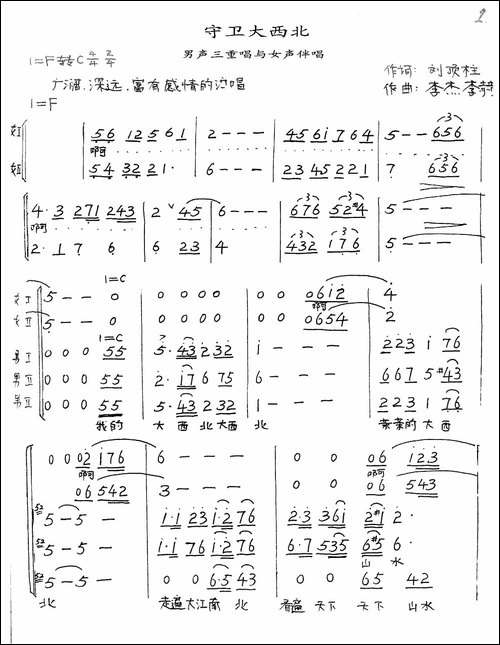 2
守卫大西北
男声三重唱与女声伴唱
1=F转C 4/4 2/4
作词: 刘顶柱
广阔、深远、富有感情的
作曲: 李杰
1=F
女I 56 12 5 61 | 2 - - - | 45 61 76 4 | 5 - - 656
啊
女II 54 32 21· | 6 - - - | 23 45 22 1 | 7 656
4·3 271 243 | 2 45 | 6 - - - | 676 52#4 | 5 - - -
啊
2·1 7 6 | 6 23 4 | 432 176 | 5 - - -
1=C
女I 5 - - 0 | 0 0 0 0 | 0 0 0612 | 4
啊
女II 5 - - 0 | 0 0 0 0 | 0654 | 2
1=C
男I 0 0 0 55 | 5·43 2 32 | 1 - - - | 223 1 76
男II 0 0 0 55 | 2·17 6 75 | 6 - - - | 667 5#43
男III 0 0 0 55 | 5·43 2 32 | 1 - - - | 223 1 76
我的 大 西 北大西 北 亲亲的大西
0 0 02 176 | 6 - - - | 0 0 06 123
啊 啊
06 542 | 3 - - - | 0 0 06 543
5 - 5 - | 1·1 23 1·2 76 | 2·3 361 2#1 2·
5 - 5 - | 1·1 76 1·2 76 | 6·7 535 6#5 6·
山 水
5 - 5 - | 0 0 6·5 43 | 0 0 65 42
北 走遍大江南 北 看遍 天下 天下 山水